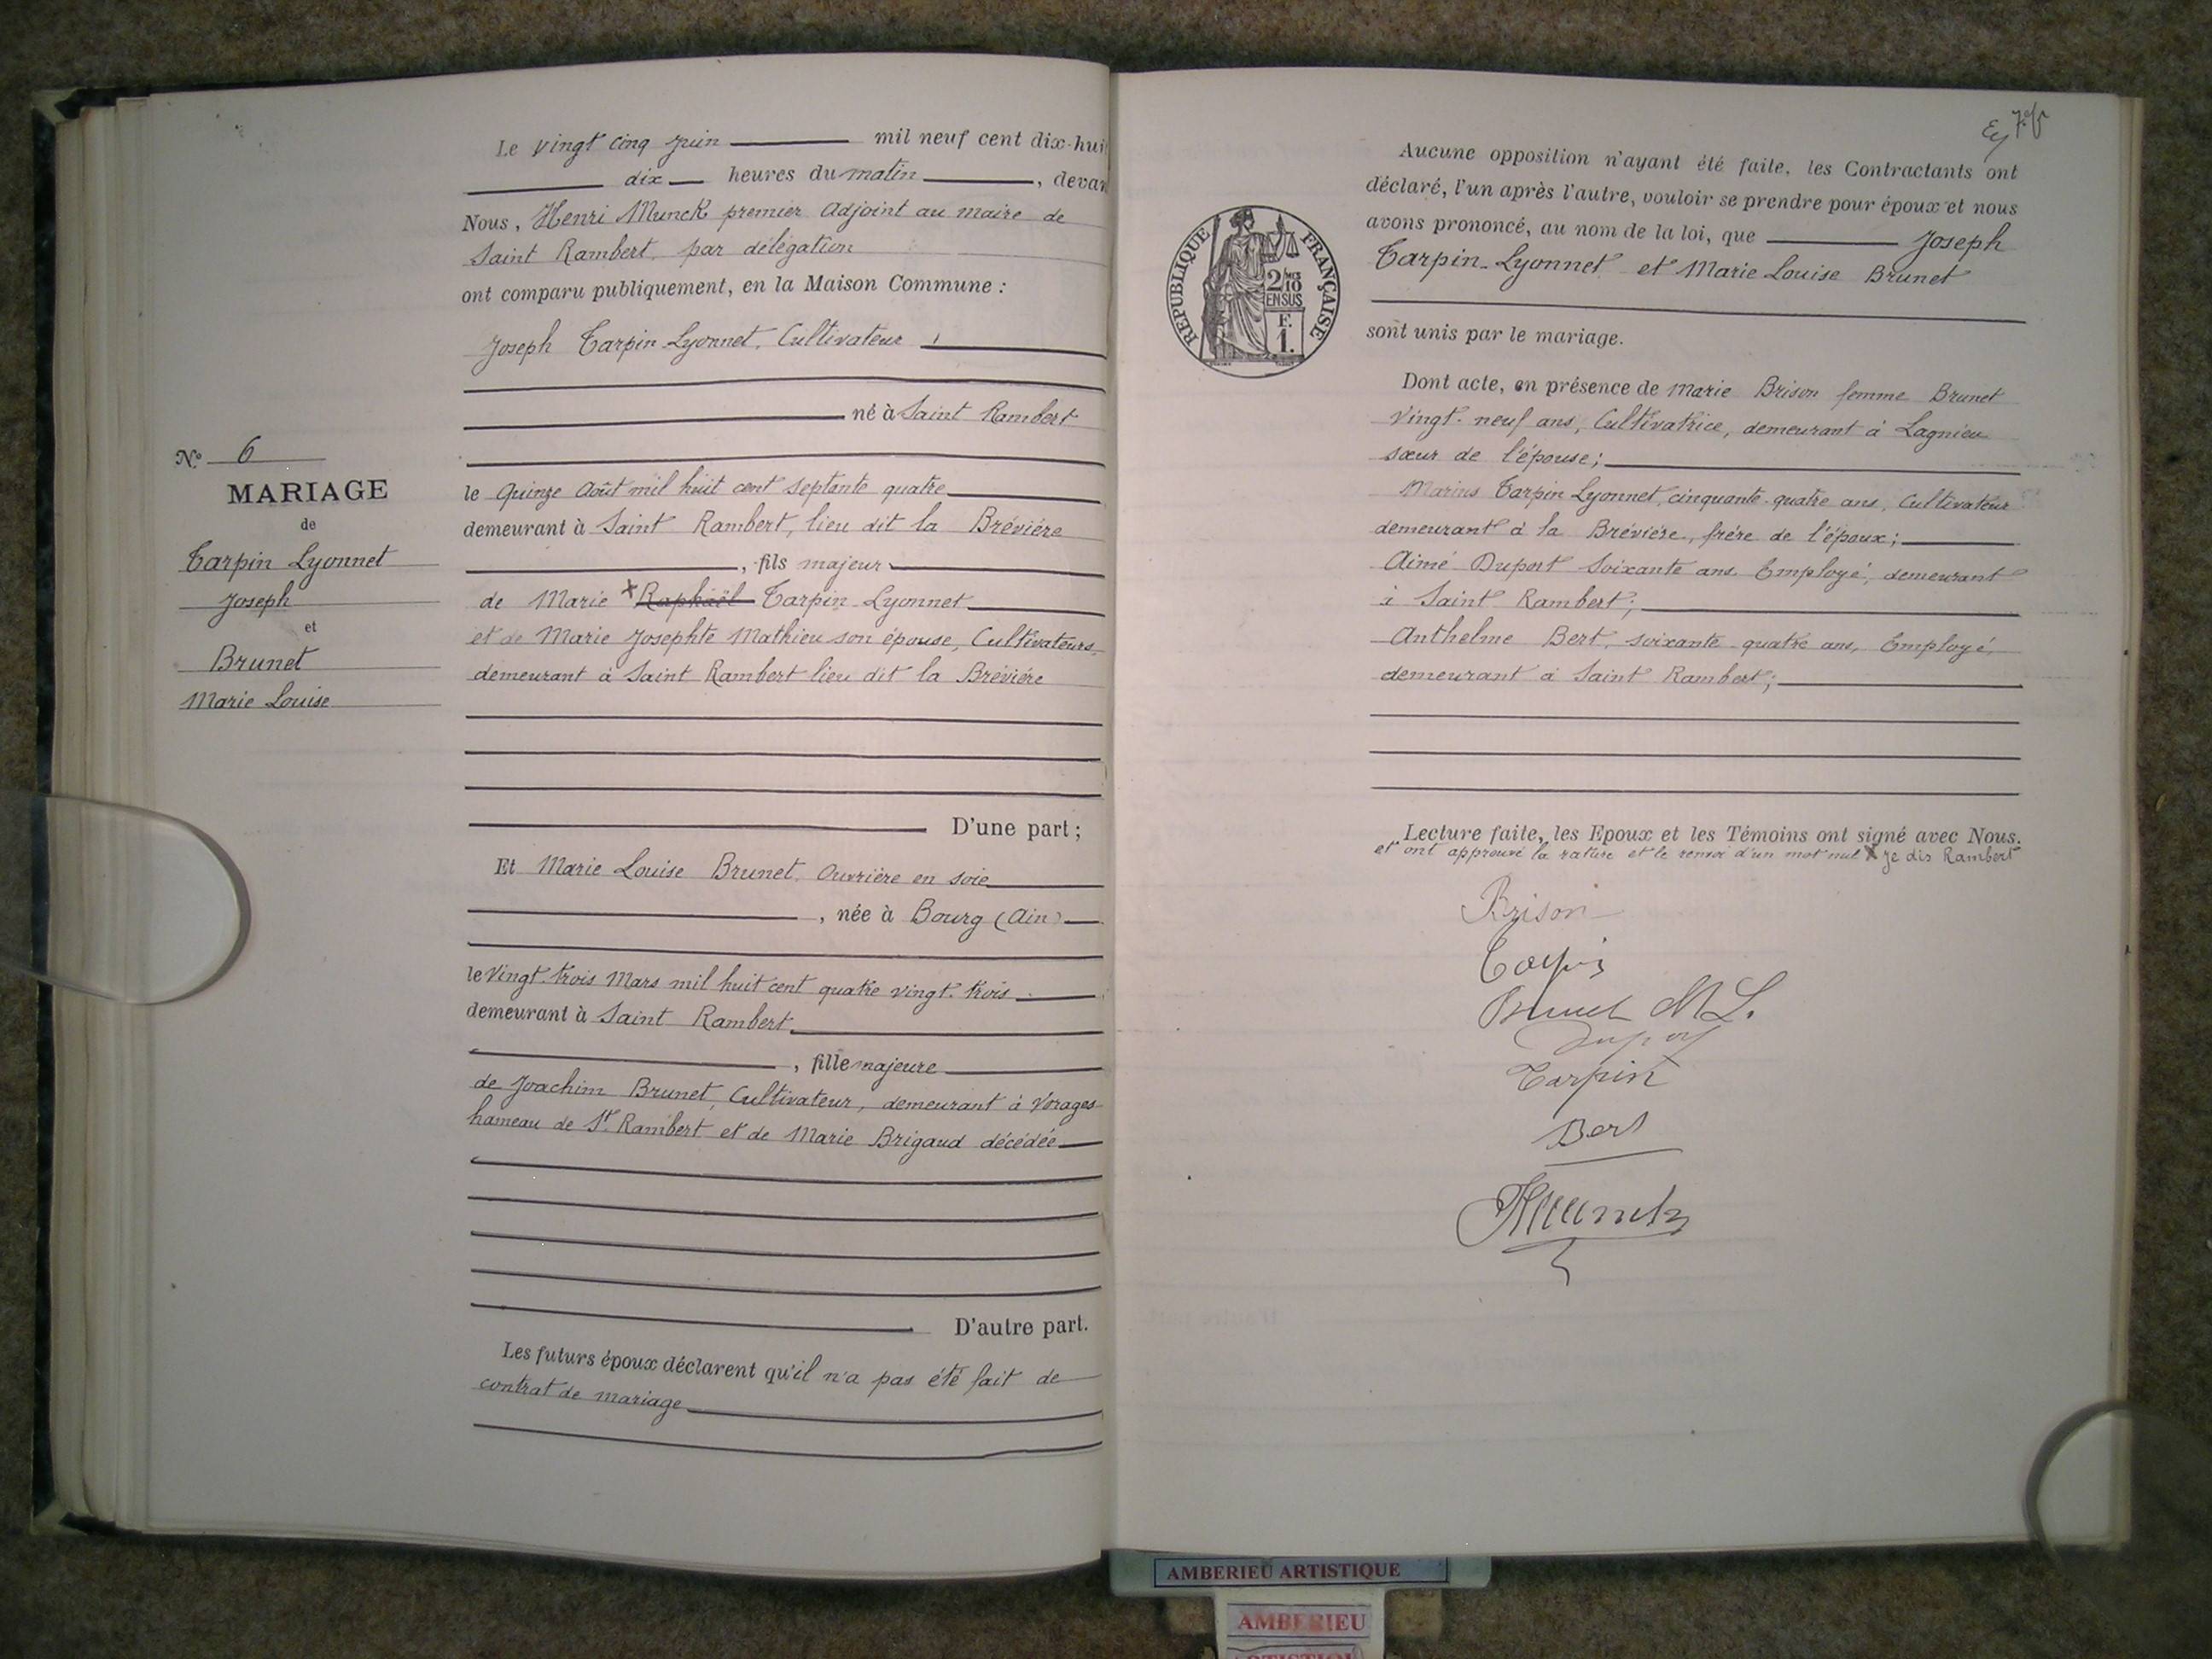 Le vingt cinq juin mil neuf cent dix-hui
dix heures du matin, devan
Nous, Henri Munck premier Adjoint au maire de
Saint Rambert, par délégation
ont comparu publiquement, en la Maison Commune :
Joseph Tarpin-Lyonnet, Cultivateur
né à Saint Rambert
le quinze Août mil huit cent septante quatre
demeurant à Saint Rambert, lieu dit la Brévière
, fils majeur
de Marie × Raphaël Tarpin-Lyonnet
et de Marie Josephte Mathieu son épouse, Cultivateurs,
demeurant à Saint Rambert lieu dit la Brévière
D'une part ;
Et Marie Louise Brunet, Ouvrière en soie
, née à Bourg (Ain)
le vingt-trois Mars mil huit cent quatre vingt-trois
demeurant à Saint Rambert
, fille majeure
de Joachim Brunet, Cultivateur, demeurant à Vorages
hameau de St Rambert et de Marie Brigaud décédée
D'autre part.
Les futurs époux déclarent qu'il n'a pas été fait de
contrat de mariage
N° 6
MARIAGE
de
Tarpin Lyonnet
Joseph
et
Brunet
Marie Louise
Aucune opposition n'ayant été faite, les Contractants ont
déclaré, l'un après l'autre, vouloir se prendre pour époux et nous
avons prononcé, au nom de la loi, que Joseph
Tarpin-Lyonnet et Marie Louise Brunet
sont unis par le mariage.
RÉPUBLIQUE FRANÇAISE
2/10
EN SUS
F.
1.
Dont acte, en présence de Marie Brison femme Brunet
vingt-neuf ans, Cultivatrice, demeurant à Lagnieu
sœur de l'épouse ;
Marius Tarpin Lyonnet, cinquante-quatre ans, Cultivateur
demeurant à la Brévière, frère de l'époux ;
Aimé Duport soixante ans Employé, demeurant
à Saint Rambert ;
Anthelme Bert, soixante-quatre ans, Employé,
demeurant à Saint Rambert ;
Lecture faite, les Epoux et les Témoins ont signé avec Nous.
et ont approuvé la rature et le renvoi d'un mot nul × je dis Rambert
Brison
Tarpin
Brunet M L.
Duport
Tarpin
Bert
HMunck
AMBERIEU ARTISTIQUE
AMBERIEU
ARTISTIQUE